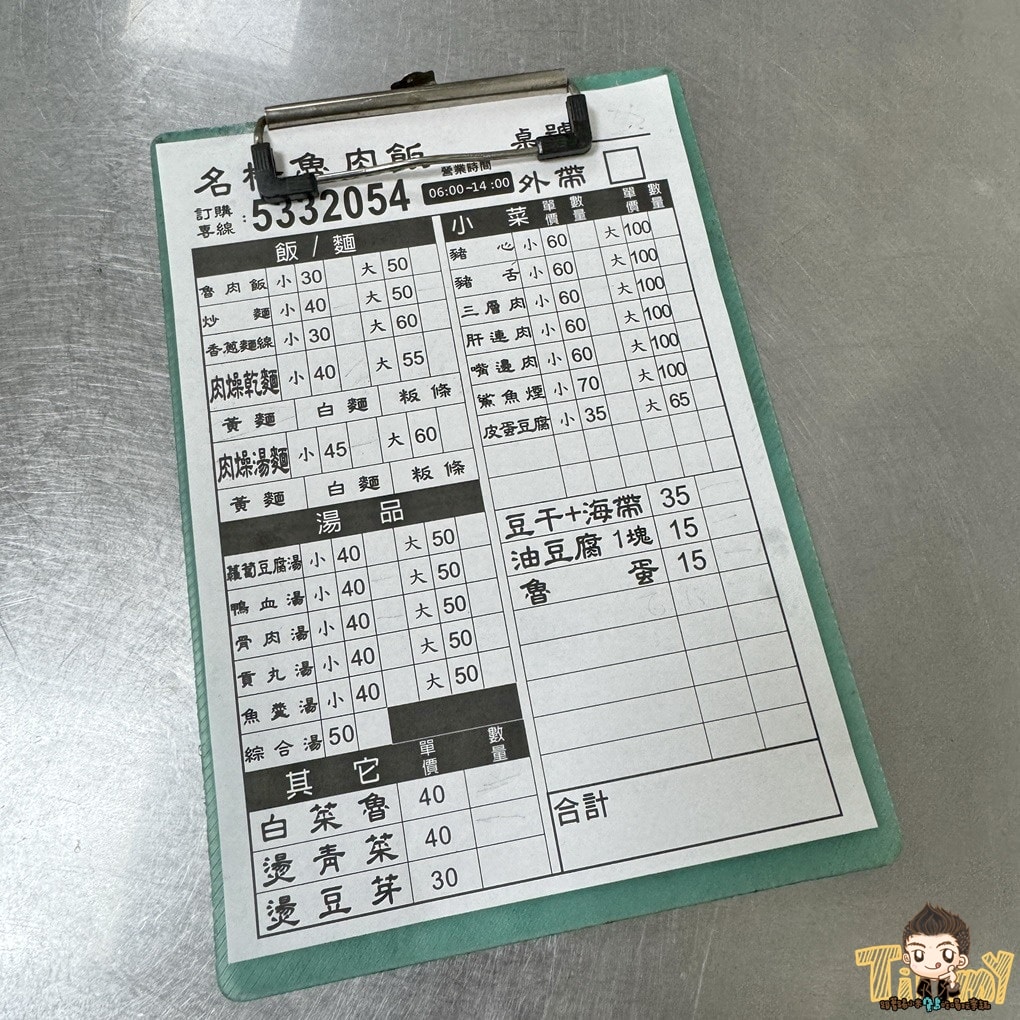 桌號
名 魯肉飯
營業時間
訂購專線：5332054 06:00~14:00 外帶
飯/麵
魯肉飯 小 30 大 50
炒麵 小 40 大 50
香蔥麵線 小 30 大 60
肉燥乾麵 小 40 大 55
黃麵 白麵 粄條
肉燥湯麵 小 45 大 60
黃麵 白麵 粄條
湯品
蘿蔔豆腐湯 小 40 大 50
鴨血湯 小 40 大 50
骨肉湯 小 40 大 50
貢丸湯 小 40 大 50
魚羹湯 小 40 大 50
綜合湯 50
其它 單價 數量
白菜魯 40
燙青菜 40
燙豆芽 30
小菜 單價 數量 單價 數量
豬心 小 60 大 100
豬舌 小 60 大 100
三層肉 小 60 大 100
肝連肉 小 60 大 100
嘴邊肉 小 60 大 100
鯊魚煙 小 70 大 100
皮蛋豆腐 小 35 大 65
豆干+海帶 35
油豆腐1塊 15
魯蛋 15
合計